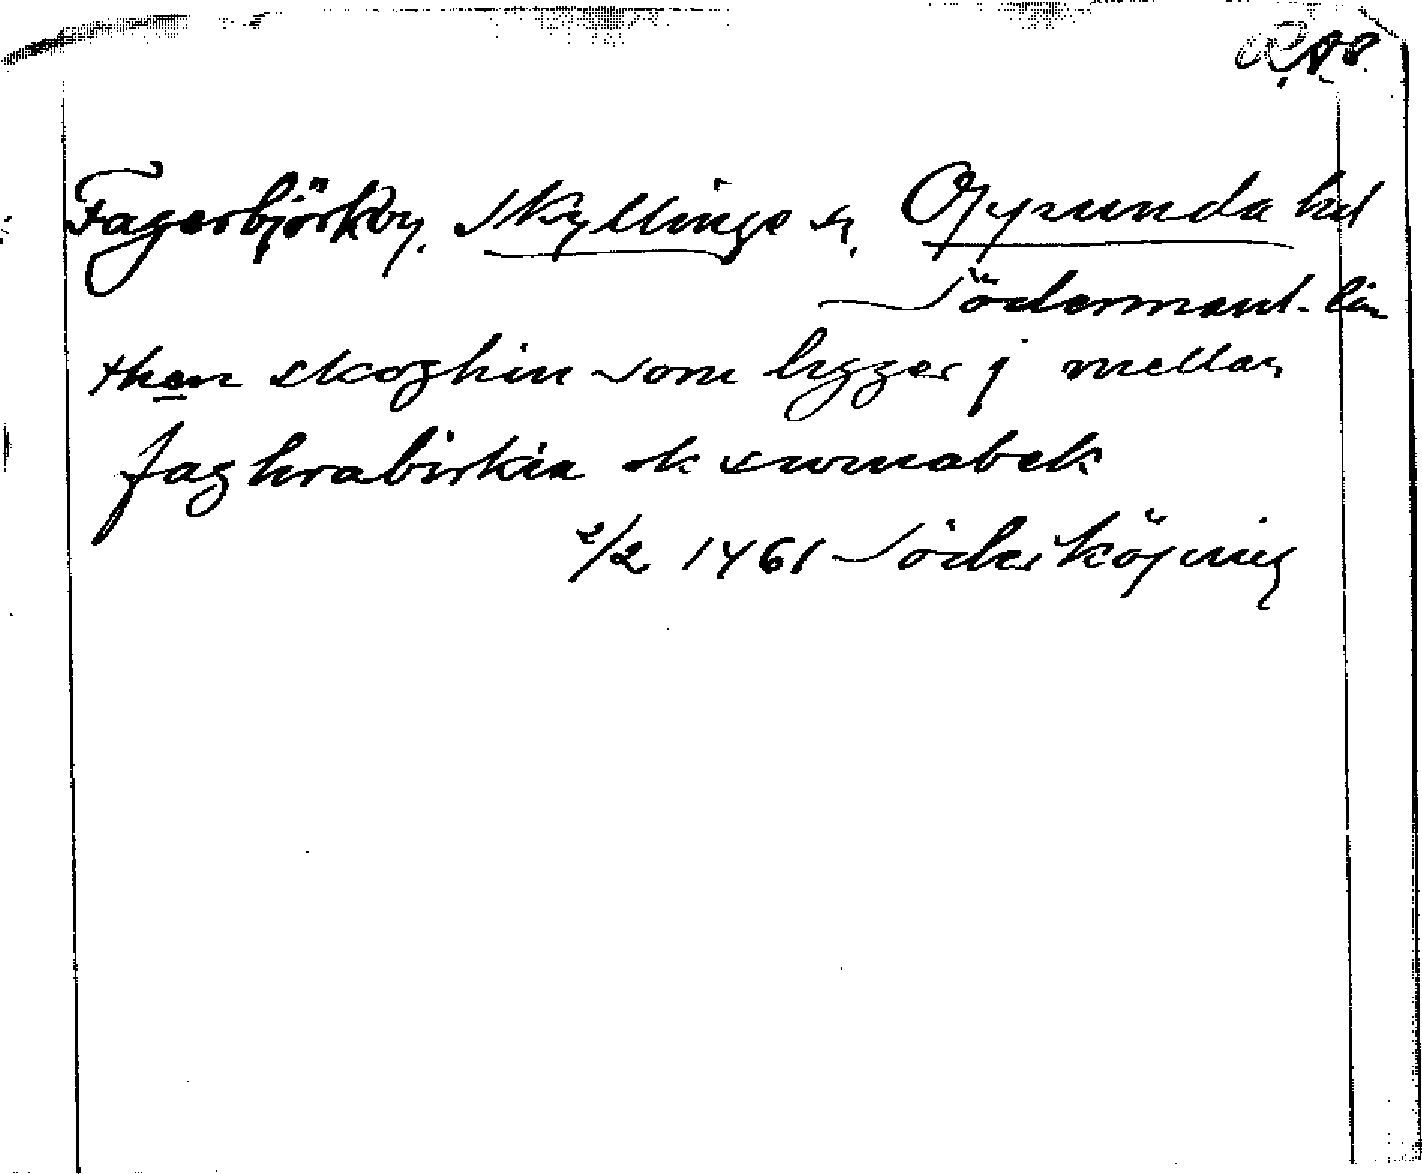 RAP.
Fagerbjörkby. Skyllinge sn, Oppunda hd
Södermanl. län
then skoghin som ligger j mellan
faghrabirkia ok swmabek
2/2 1461 Söderköping